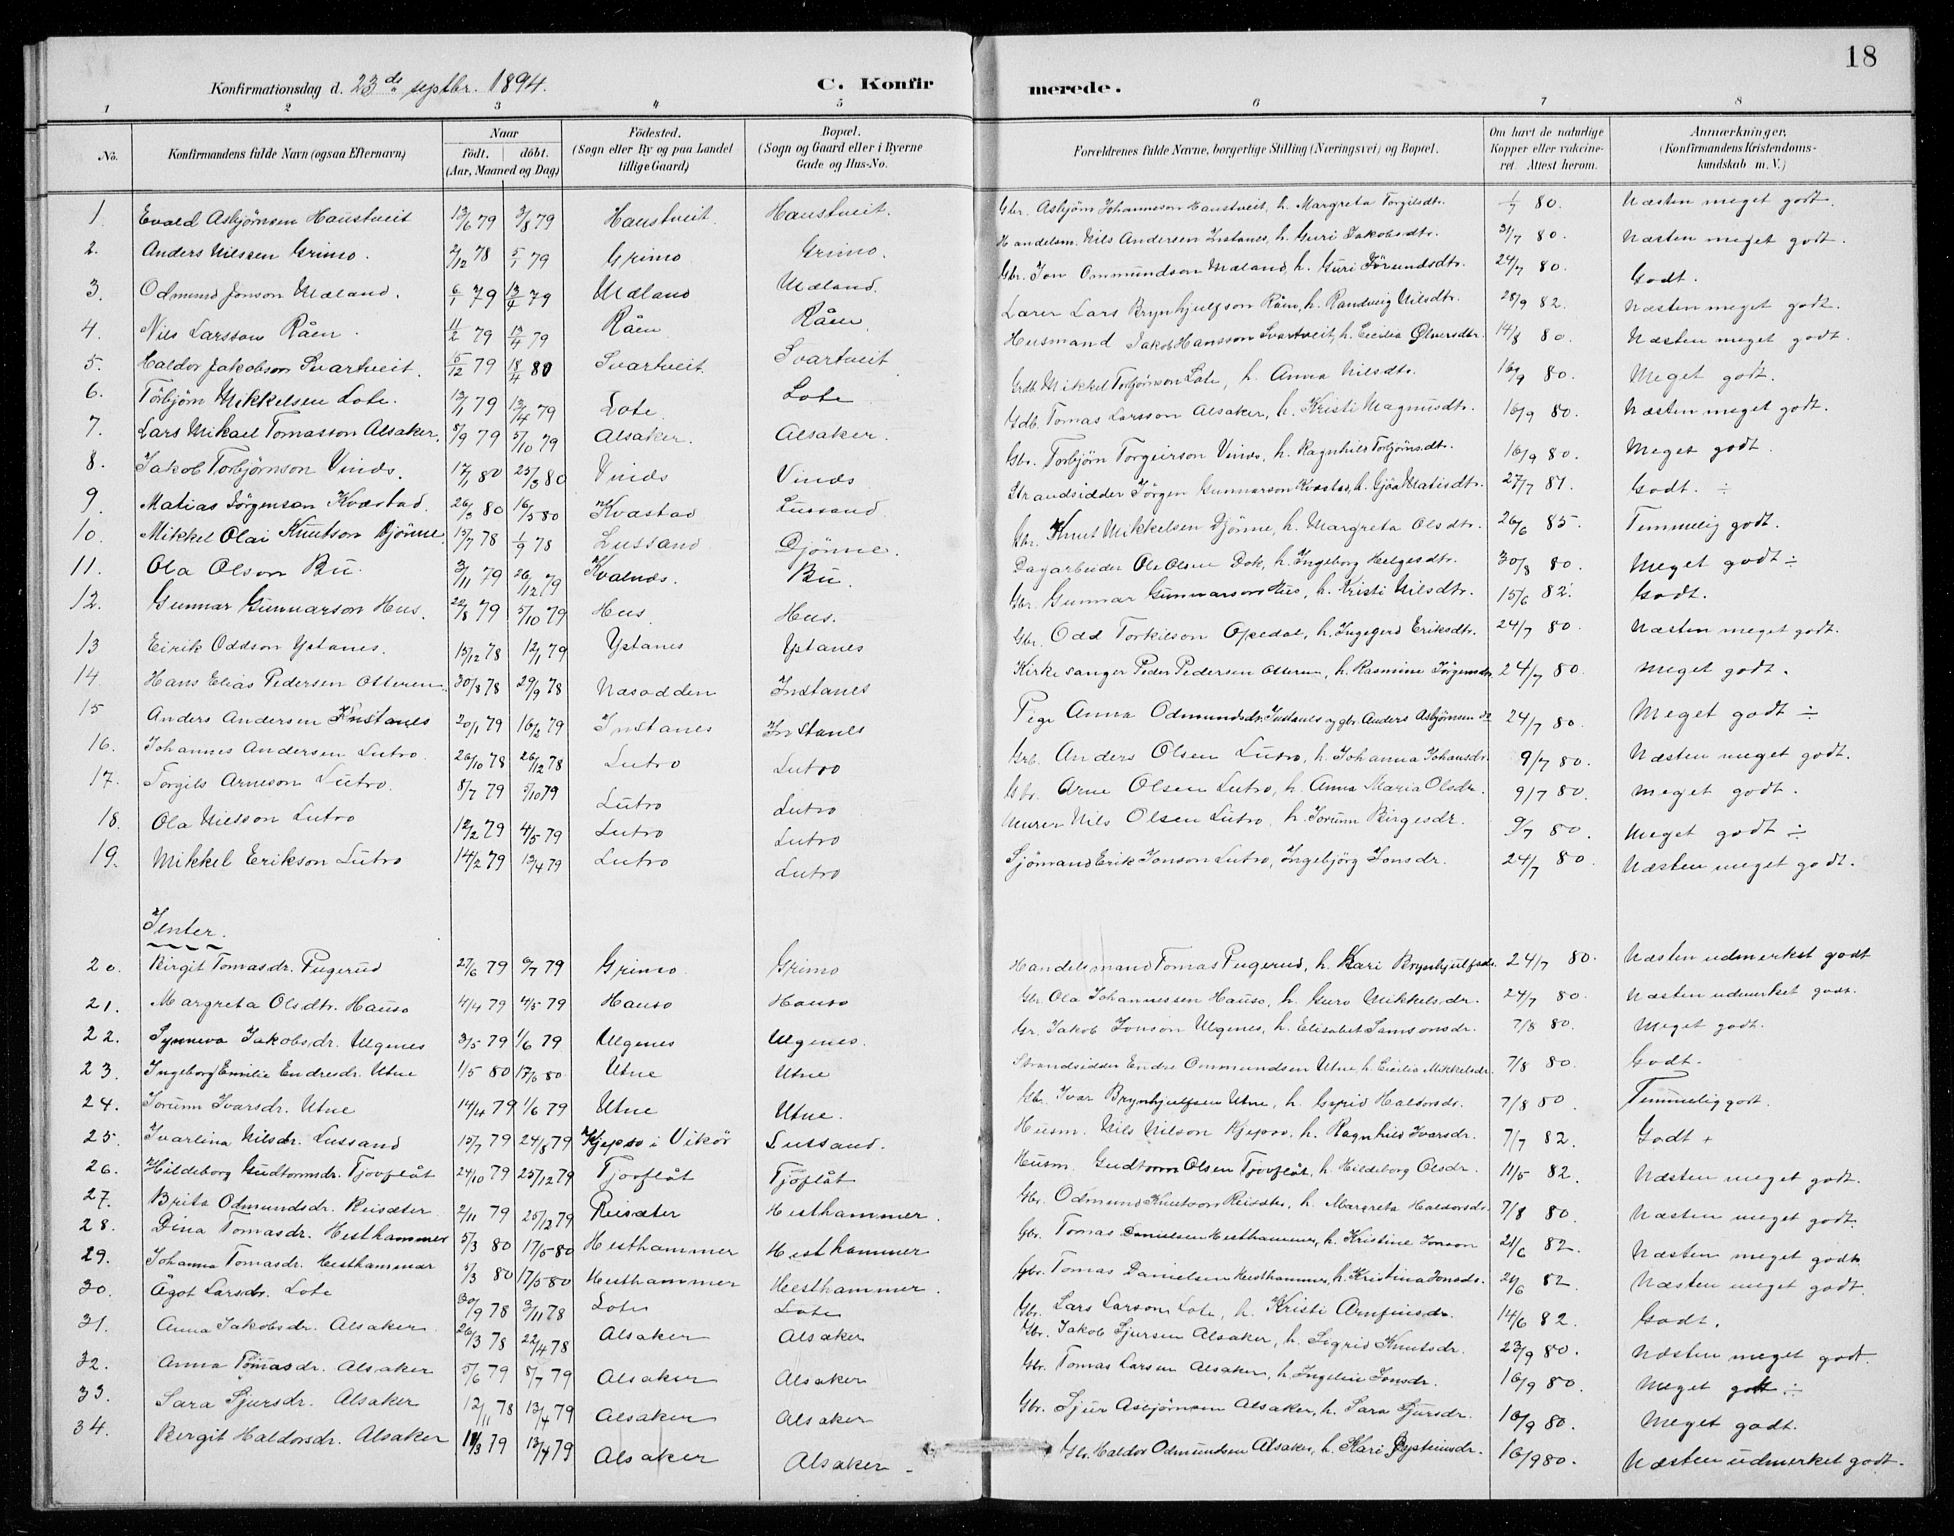 18
Konfirmationsdag d. 23de septbr. 1894. C. Konfirmerede.
1 2 3 4 5 6 7 8
No. Konfirmandens fulde Navn (ogsaa Efternavn) Naar født. døbt. (Aar, Maaned og Dag) Fødested. (Sogn eller By og paa Landet tillige Gaard) Bopæl. (Sogn og Gaard eller i Byerne Gade og Hus-No. Forældrenes fulde Navne, borgerlige Stilling (Næringsvei) og Bopæl. Om havt de naturlige Kopper eller vakcineret. Attest herom. Anmærkninger. (Konfirmandens Kristendomskundskab m. V.)
1. Evald Asbjörnsen Haustveit 13/6 79 3/8 79 Haustveit. Haustveit. Gbr. Asbjörn Johannesson Haustveit, h. Margreta Torgilsdtr. 1/7 80. Næsten meget godt.
2. Anders Nilssen Grimo. 2/12 78 5/1 79 Grimo Grimo. Handelsm. Nils Andersen Instanes, h. Guri Jakobsdtr. 31/7 80. Næsten meget godt.
3. Odmund Jonson Mæland. 6/1 79 13/4 79 Mæland Mæland. Gbr. Jon Ommundson Mæland, h. Guri Jörundsdtr. 24/7 80. Godt.
4. Nils Larsson Råen. 11/2 79 13/4 79 Råen Råen. Lærer Lars Brynhjulfson Råen, h. Randveig Nilsdtr. 28/9 82. Næsten meget godt.
5. Haldor Jakobson Svartveit. 5/12 79 18/4 80 Svartveit. Svartveit Husmand Jakob Hansson Svartveit, h. Ecilia Ølversdtr. 14/8 80. Næsten meget godt.
6. Törbjörn Mikkelsen Lote. 13/1 79 13/4 79 Lote. Lote Grdb. Mikkel Torbjörnson Lote, h. Anna Nilsdtr. 16/9 80. Meget godt.
7. Lars Mikael Tomasson Alsaker. 5/9 79 5/10 79 Alsaker. Alsaker. Gdb. Tomas Larsson Alsaker, h. Kristi Magnusdtr. 16/9 80. Næsten meget godt.
8. Jakob Torbjörnson Vinds. 17/1 80 25/3 80 Vinds Vinds Gbr. Torbjörn Torgeirson Vinds, h. Ragnhild Torbjörnsdtr. 16/9 80. Meget godt.
9. Matias Jörgensen Kvæstad. 26/3 80 16/5 80 Kvæstad Lussand Strandsidder Jörgen Gunnarson Kvæstad, h. Gjöa Matisdtr. 27/7 81. Godt. ÷
10. Mikkel Olai Knutson Djönne. 13/7 78 1/9 78 Lussand Djönne. Gbr. Knut Mikkelsen Djönne, h. Margreta Olsdtr. 26/6 85. Temmelig godt.
11. Ola Olson Bu. 3/11 79 26/12 79 Kvalnes. Bu. Dagarbeider Ole Olsen Dok, h. Ingeborg Helgesdtr. 30/8 80. Meget godt ÷
12. Gunnar Gunnarson Hus. 22/8 79 5/10 79 Hus. Hus. Gbr. Gunnar Gunnarson Hus, h. Kristi Nilsdtr. 15/6 82. Godt.
13 Eirik Oddson Ystanes. 13/12 78 12/1 79 Ystanes Ystanes Gbr. Odd Torkilson Opedal, h. Ingegerd Eriksdtr. 24/7 80. Næsten meget godt.
14. Hans Elias Pedersen Otteren. 30/8 78 29/9 78 Næsodden Instanes Kirkesanger Peder Pedersen Otteren, h. Rasmine Jörgensdr. 24/7 80. Meget godt.
15 Anders Andersen Instanes 20/1 79 16/2 79 Instanes Instanes Pige Anna Odmundsdr. Instanes og gbr. Anders Asbjörnsen 24/7 80. Meget godt ÷
16. Johannes Andersen Lutro. 26/10 78 26/12 78 Lutro Lutro Gbr. Anders Olsen Lutro, h. Johanna Johansdr. 9/7 80. Næsten meget godt.
17. Torgils Arneson Lutro. 8/7 79 5/10 79 Lutro Lutro Gbr. Arne Olsen Lutro, h. Anna Maria Olsdr. 9/7 80. Meget godt.
18. Ola Nilsson Lutro 12/2 79 4/5 79 Lutro Lutro Murer Nils Olsen Lutro, h. Jorunn Birgesdr. 9/7 80. Meget godt ÷
19. Mikkel Erikson Lutro 14/2 79 13/4 79 Lutro Lutro Sjömand Erik Jonson Lutro, Ingebjörg Jonsdr. 24/7 80. Næsten meget godt.
Jenter.
20. Birgit Tomasdr. Pugerud 27/6 79 6/7 79 Grimo Grimo Handelsmand Tomas Pugerud, h. Kari Brynhjulfsdr. 24/7 80. Næsten udmerket godt
21. Margreta Olsdtr. Hauso 4/4 79 4/5 79 Hauso Hauso Gbr. Ola Johannessen Hauso, h. Guro Mikkelsdr. 24/7 80. Næsten udmerket godt.
22. Synneva Jakobsdr. Ulgenes 3/5 79 1/6 79 Ulgenes Ulgenes. Gr. Jakob Jonson Ulgenes, h. Elisabet Samsonsdr. 7/8 80. Meget godt.
23. Ingeborg Emilie Endresdr. Utne 1/5 80 17/5 80 Utne Utne Strandsidder Endre Ommundsen Utne, h. Cecilia Mikkelsdr. 7/8 80. Godt.
24. Jorunn Ivarsdr. Utne 14/4 79 1/6 79 Utne Utne. Gbr. Ivar Brynhjulfsen Utne, h. Gyrid Haldorsdr. 7/8 80. Temmelig godt.
25. Ivarlina Nilsdr. Lussand 15/7 79 24/8 79 Kjepso i Vikör Lussand. Husm. Nils Nilson Kjepso, h. Ragnhild Ivarsdr. 7/7 82. Godt +
26. Hildeborg Gudtormsdr. Tjoflåt 24/10 79 25/12 79 Tjovflåt Tjöflåt Husm. Gudtorm Olsen Tjovflåt, h. Hildeborg Olsdr. 11/5 82. Næsten meget godt.
27. Brita Odmundsdr. Reisæter 2/11 79 25/12 79 Reisæter Hesthammer. Gbr. Odmund Knutson Reisæter, h. Margreta Haldorsdr. 7/8 80. Næsten meget godt.
28. Dina Tomasdr. Hesthammer 5/3 80 17/5 80 Hesthammer Hesthammer Gbr. Tomas Danielsen Hesthammer, h. Kristine Jonson 21/6 82. Næsten meget godt.
29. Johanna Tomasdr. Hesthammer 5/3 80 17/5 80 Hesthammer Hesthammer. Gbr. Tomas Danielsen Hesthammer, h. Kristina Jonsdr. 21/6 82 Næsten meget godt.
30. Ågot Larsdr. Lote 30/9 78 3/11 78 Lote Lote Gbr. Lars Larson Lote, h. Kristi Arnfinsdr. 14/6 82. Godt.
31. Anna Jakobsdr. Alsaker 26/3 78 22/4 78 Alsaker Alsaker Gbr. Jakob Sjursen Alsaker, h. Sigrid Knutsdr. 23/9 80. Næsten meget godt.
32. Anna Tomasdr. Alsaker 5/6 79 5/7 79 Alsaker Alsaker Gbr. Tomas Larsen Alsaker, h. Ingelin Jonsdr. 16/9 80. Meget godt ÷
33. Sara Sjursdr. Alsaker 12/11 78 13/4 79 Alsaker Alsaker Gbr. Sjur Asbjörnsen Alsaker, h. Sara Sjursdr. 16/9 80. Meget godt.
34. Birgit Haldorsdr. Alsaker 11/3 79 13/4 79 Alsaker Alsaker Gbr. Haldor Odmundsen Alsaker, h. Kari Øysteinsdr. 16/9 80. Næsten udmerket godt.